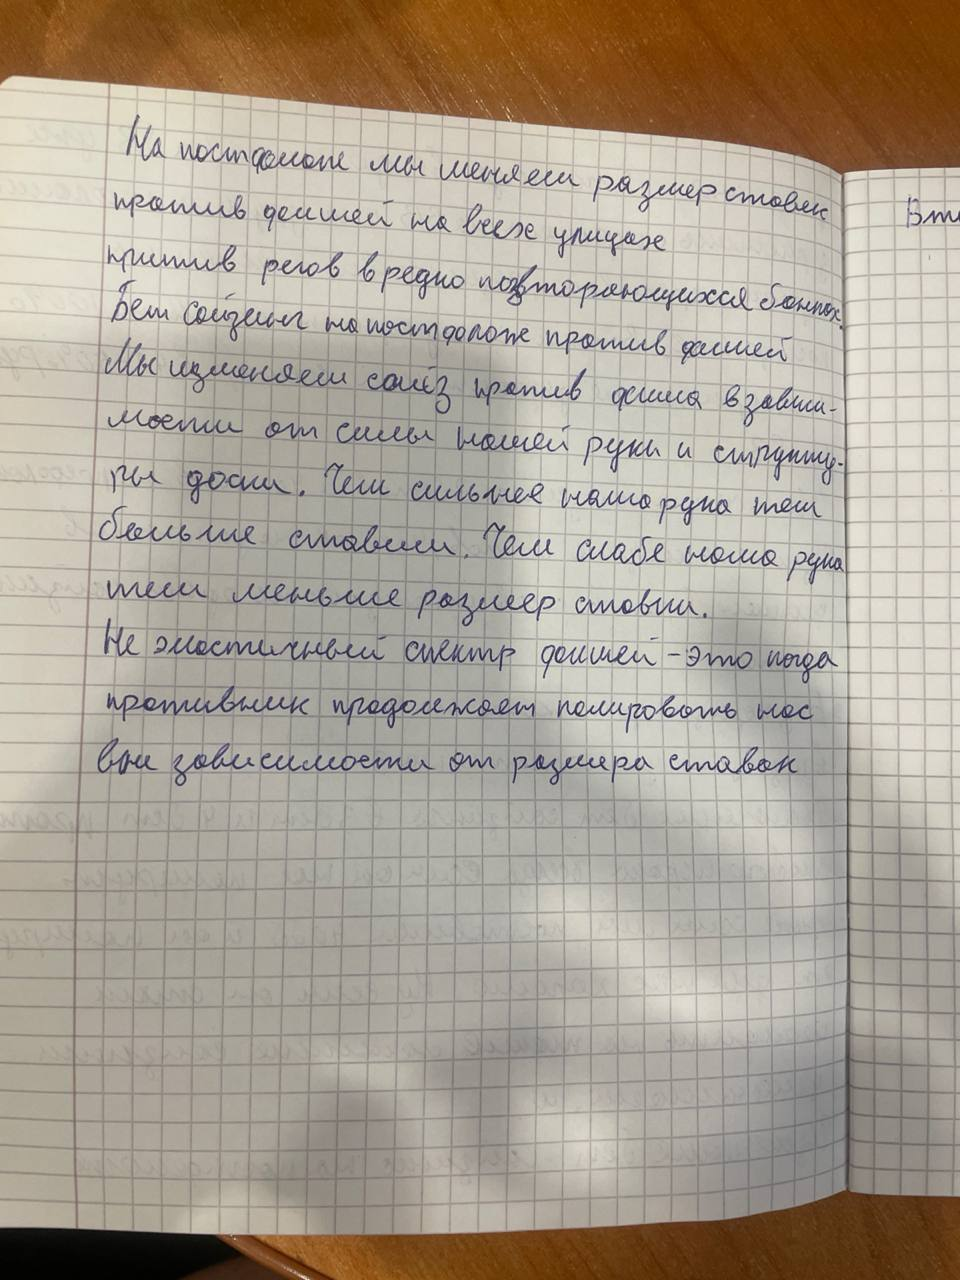 На постфлопе мы меняем размер ставок
против фишей на всех улицах
против регов в редко повторяющихся банках.
Бет сайзинг на постфлопе против фишей
Мы изменяем сайз против фиша в зависи-
мости от силы нашей руки и структу-
ры доски. Чем сильнее наша рука тем
больше ставим. Чем слабе наша рука
тем меньше размер ставки.
Не эластичный спектр фишей - это когда
противник продолжает колировать нас
вне зависимости от размера ставок
Вт